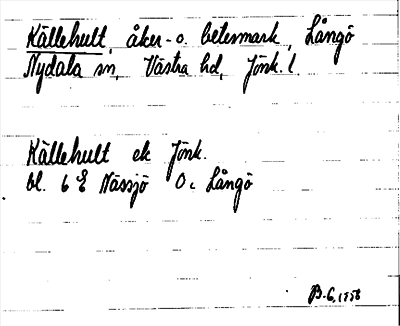 Källehult, åker- o. betesmark, Långö
Nydala sn, Västra hd, Jönk. l.
Källehult ek Jönk.
bl. 6 E Nässjö 0 c Långö